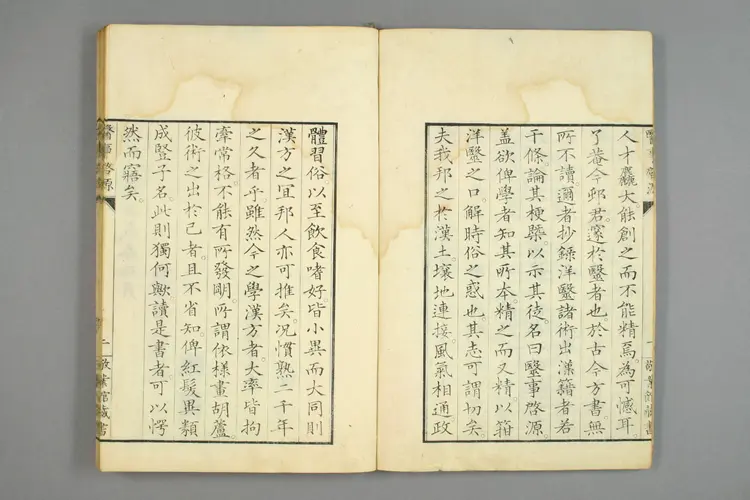 人才麤大能創之而不能精焉爲可憾耳
了菴今邨君邃於毉者也於古今方書無
所不讀邇者抄錄洋毉諸術出漢籍者若
干條論其梗槩以示其徒名曰毉事啓源
蓋欲俾學者知其所本精之而又精以箝
洋毉之口解時俗之惑也其志可謂切矣
夫我邦之於漢土壤地連接風氣相通政
一 敬業館藏書
體習俗以至飲食嗜好皆小異而大同則
漢方之宜邦人亦可推矣况慣熟二千年
之久者乎雖然今之學漢方者大率皆拘
牽常格不能有所發明所謂依樣畫胡蘆
彼術之出於己者且不省知俾紅髮異類
成竪子名此則獨何歟讀是書者可以愕
然而寤矣
醫事啓源 二 敬業館藏書